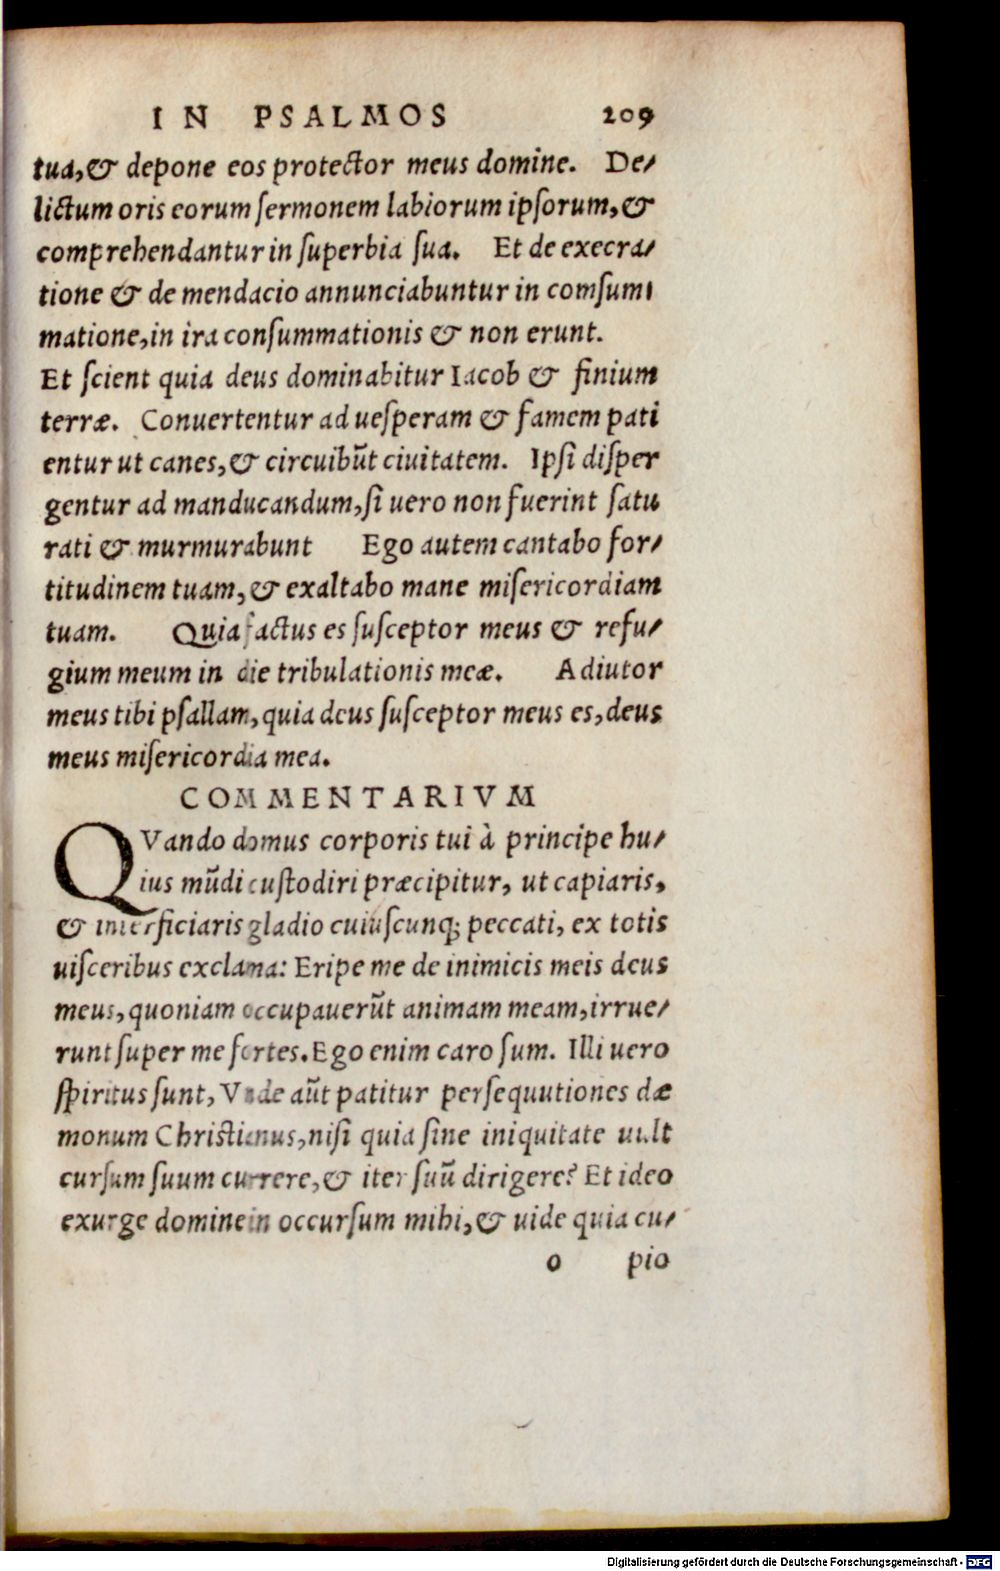 IN PSALMOS 209
tua, & depone eos protector meus domine. De-
lictum oris eorum sermonem labiorum ipsorum, &
comprehendantur in superbia sua. Et de execra-
tione & de mendacio annunciabuntur in comsum-
matione, in ira consummationis & non erunt.
Et scient quia deus dominabitur Iacob & finium
terræ. Conuertentur ad uesperam & famem pati
entur ut canes, & circuibūt ciuitatem. Ipsi disper
gentur ad manducandum, si uero non fuerint satu
rati & murmurabunt Ego autem cantabo for-
titudinem tuam, & exaltabo mane misericordiam
tuam. Quia factus es susceptor meus & refu-
gium meum in die tribulationis meæ. Adiutor
meus tibi psallam, quia deus susceptor meus es, deus
meus misericordia mea.
COMMENTARIVM
QVando domus corporis tui à principe hu-
ius mūdi custodiri præcipitur, ut capiaris,
& interficiaris gladio cuiuscunq; peccati, ex totis
uisceribus exclama: Eripe me de inimicis meis deus
meus, quoniam occupauerūt animam meam, irrue-
runt super me fortes. Ego enim caro sum. Illi uero
spiritus sunt, Vnde aūt patitur persequutiones dæ
monum Christianus, nisi quia sine iniquitate uult
cursum suum currere, & iter suū dirigere? Et ideo
exurge domine in occursum mihi, & uide quia cu-
o pio
Digitalisierung gefördert durch die Deutsche Forschungsgemeinschaft - DFG